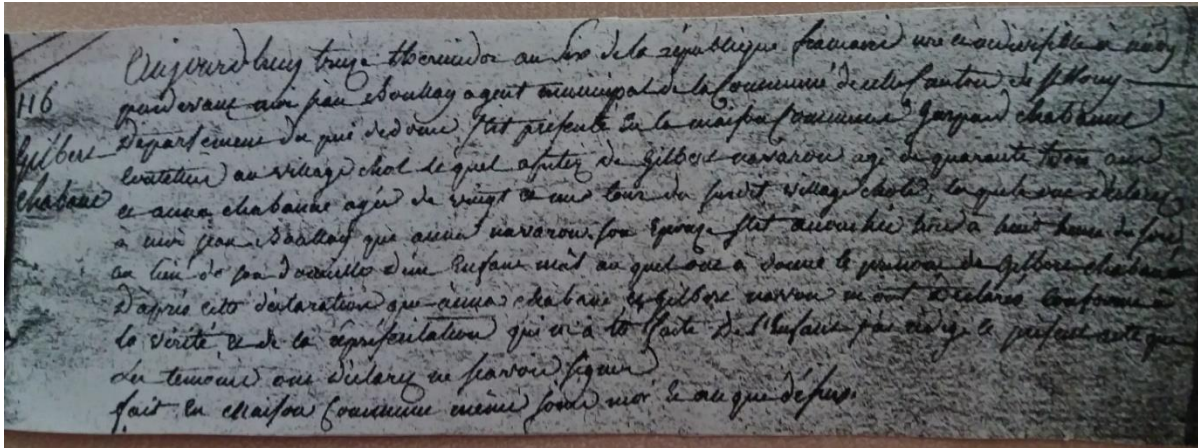 Aujourdhuy treize thermidor an six de la république francaise une et indivisible à midy
116
pardevant moi jean Boullay agent municipal de la Commune de celle Canton de
Gilbert
Departement du puis dedome s'est présenté En la maison Commune Gaspard chabanne
Cultivateur au village chol lequel assisté de Gilbert navaron agé de quarante trois ans
chabane
et anna chabanne agée de vingt et un tous du susdit village chole, lequel a déclaré
à moi jean Boullay que anna navaron son Epouse s'est accouchée hier à huit heures du soir
au lieu de son domicille d'un Enfant mâl au quel on a donné le prénom de Gilbert chabanne
D'après cette déclaration que anna chabane et Gilbert navaron m'ont Déclarés Conforme à
la vérité et de la représentation qui m'a été faite De l'Enfant j'ai rédigé le présent acte que
Les temoins ont déclaré ne scavoir signer
fait En maison Commune même jour mois et an que dessus.